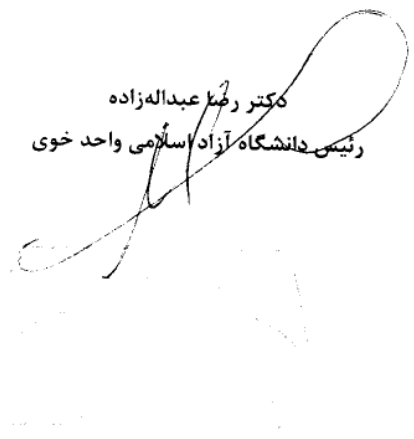 دکتر رضا عبداله‌زاده
رئیس دانشگاه آزاد اسلامی واحد خوی